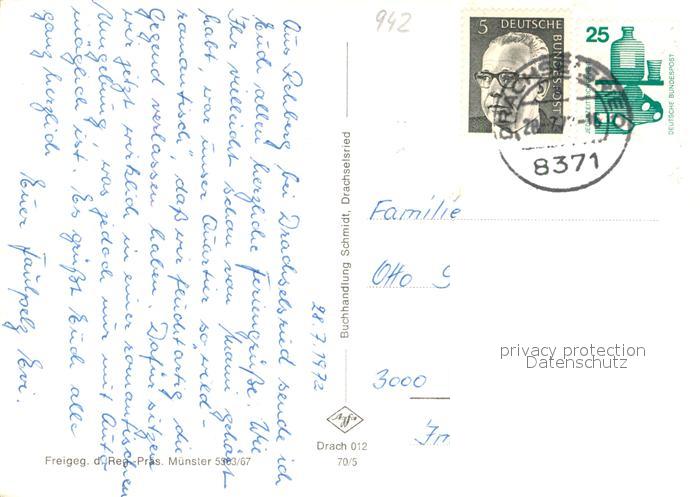 942
5
DEUTSCHE
BUNDESPOST
25
DEUTSCHE BUNDESPOST
DRACHSELSRIED
8371
28.7.1972
Aus Rehberg bei Drachselsried sende ich
Euch allen herzliche Feriengrüße. Wie
Ihr vielleicht schon von Mami gehört
habt, war unser Quartier so "wild-
romantisch", daß wir fluchtartig die
Gegend verlassen haben. Dafür sitzen
wir jetzt wirklich in einer romantischen
Umgebung, was jedoch nur mit Auto
möglich ist. Es grüßt Euch alle
ganz herzlich
Euer Faulpelz Evi.
Buchhandlung Schmidt, Drachselsried
Familie
Otto
3000
privacy protection
Datenschutz
Agfa
Drach 012
70/5
Freigeg. d. Reg.-Präs. Münster 5563/67